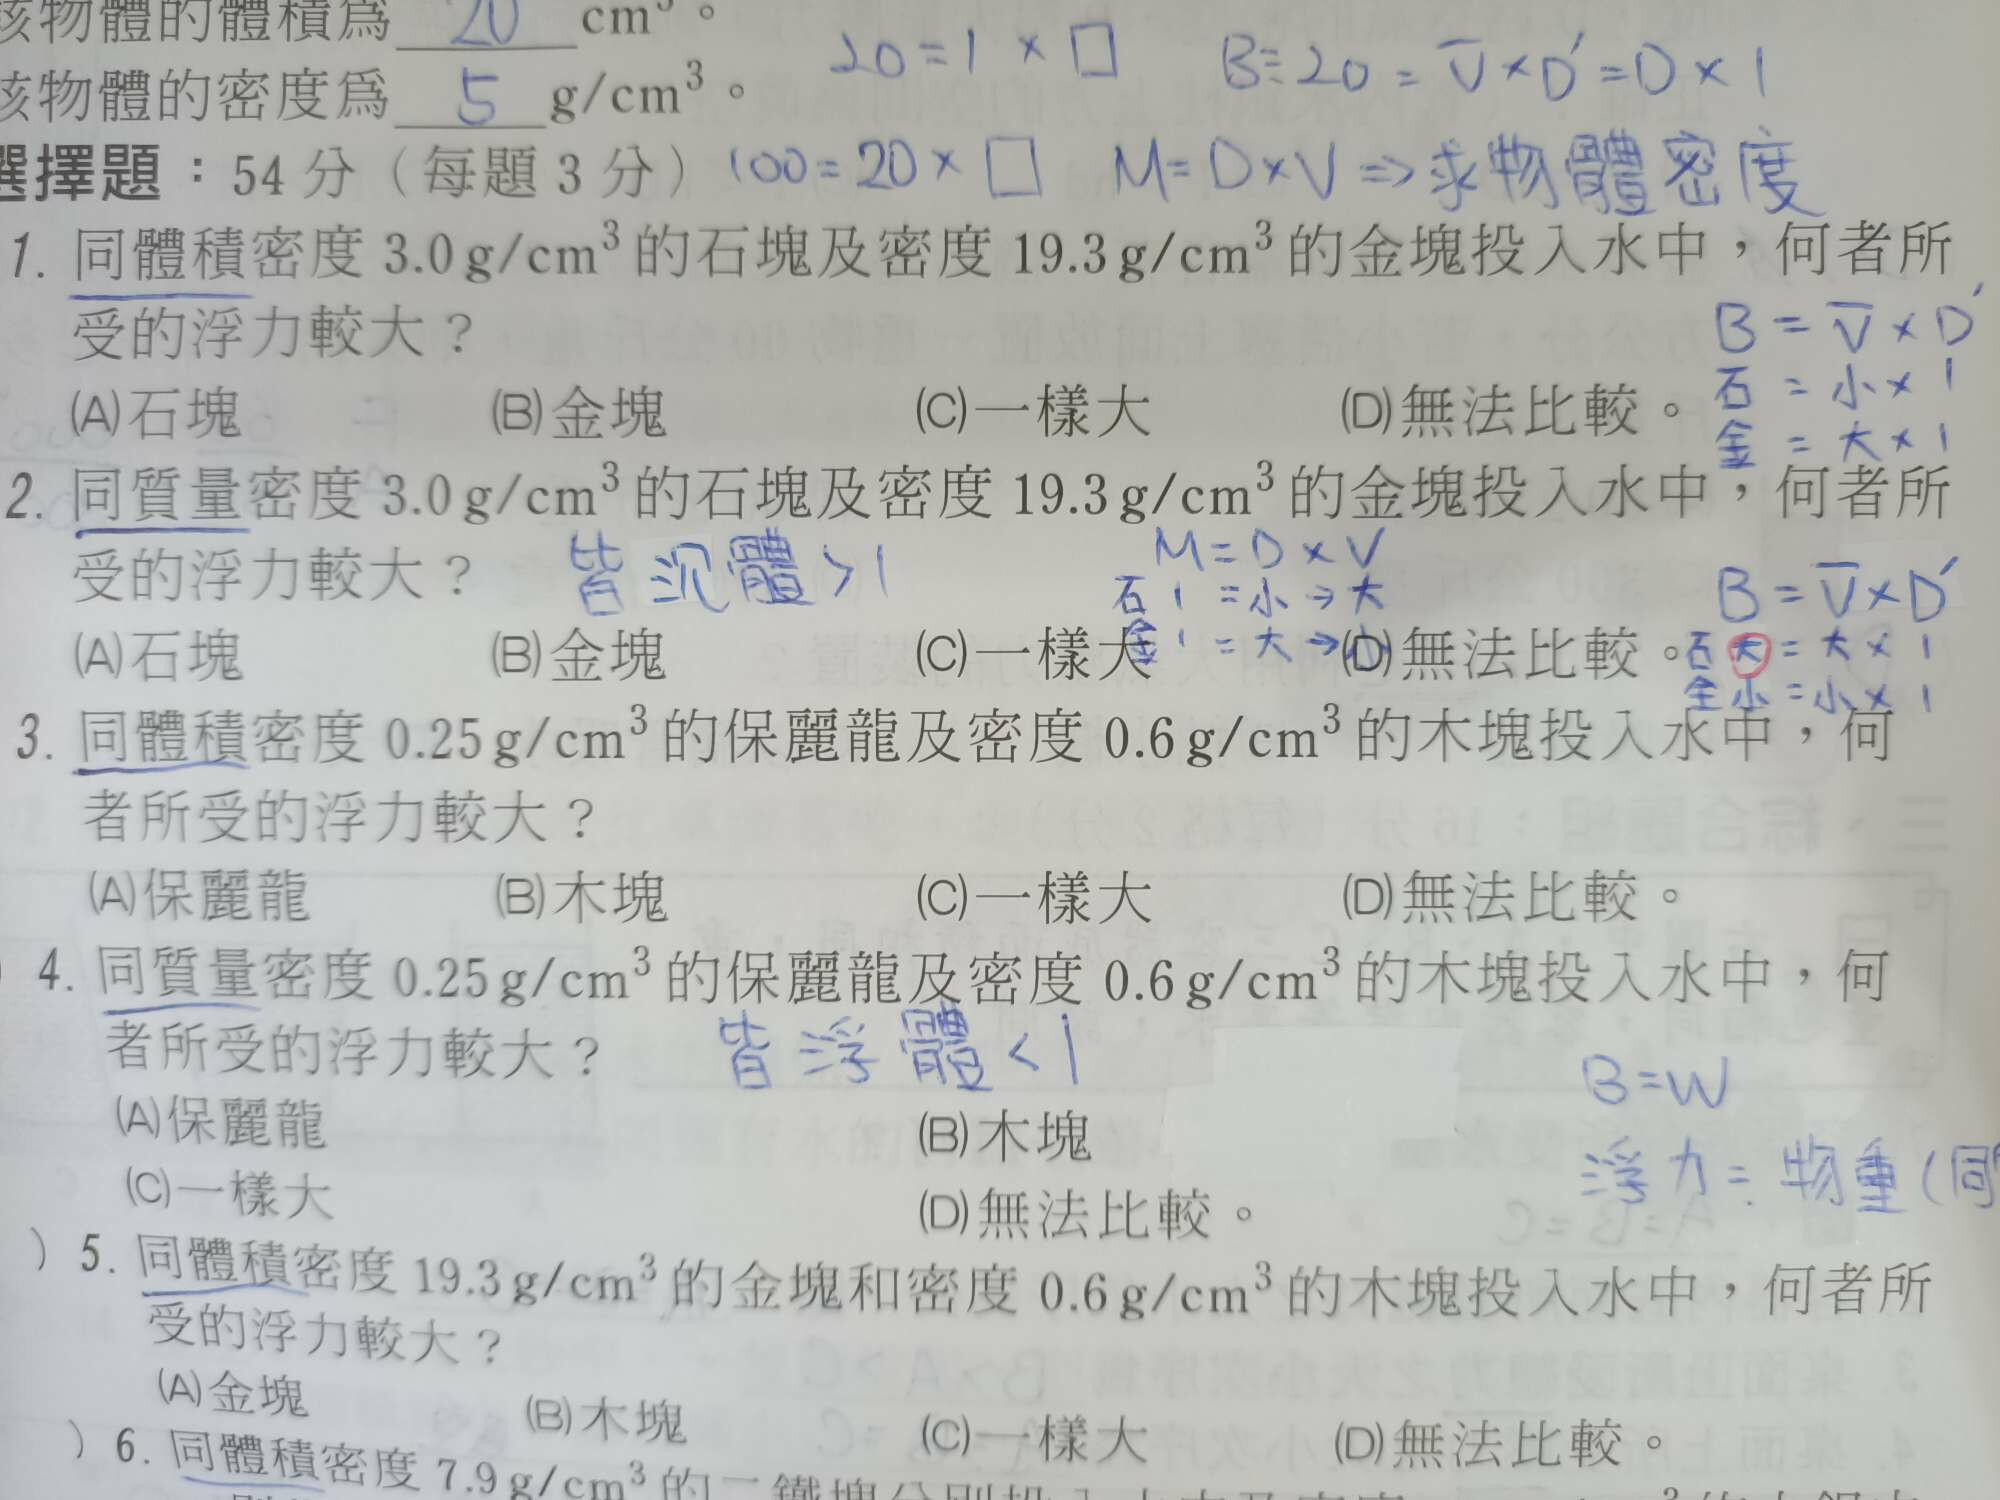 該物體的體積為 20 cm³。
20 = 1 × □
B = 20 = V × D' = D × 1
該物體的密度為 5 g/cm³。
選擇題：54 分（每題 3 分）
100 = 20 × □
M = D × V ⇒ 求物體密度
1. 同體積密度 3.0 g/cm³ 的石塊及密度 19.3 g/cm³ 的金塊投入水中，何者所
受的浮力較大？
B = V × D'
石 = 小 × 1
金 = 大 × 1
(A)石塊 (B)金塊 (C)一樣大 (D)無法比較。
2. 同質量密度 3.0 g/cm³ 的石塊及密度 19.3 g/cm³ 的金塊投入水中，何者所
受的浮力較大？
皆沉體 > 1
M = D × V
石 1 = 小 → 大
金 1 = 大 → 小
B = V × D'
石 大 = 大 × 1
金 小 = 小 × 1
(A)石塊 (B)金塊 (C)一樣大 (D)無法比較。
3. 同體積密度 0.25 g/cm³ 的保麗龍及密度 0.6 g/cm³ 的木塊投入水中，何
者所受的浮力較大？
(A)保麗龍 (B)木塊 (C)一樣大 (D)無法比較。
) 4. 同質量密度 0.25 g/cm³ 的保麗龍及密度 0.6 g/cm³ 的木塊投入水中，何
者所受的浮力較大？
皆浮體 < 1
B = W
浮力 = 物重 (同
(A)保麗龍 (B)木塊
(C)一樣大 (D)無法比較。
) 5. 同體積密度 19.3 g/cm³ 的金塊和密度 0.6 g/cm³ 的木塊投入水中，何者所
受的浮力較大？
(A)金塊 (B)木塊 (C)一樣大 (D)無法比較。
) 6. 同體積密度 7.9 g/cm³ 的二鐵塊分別投入